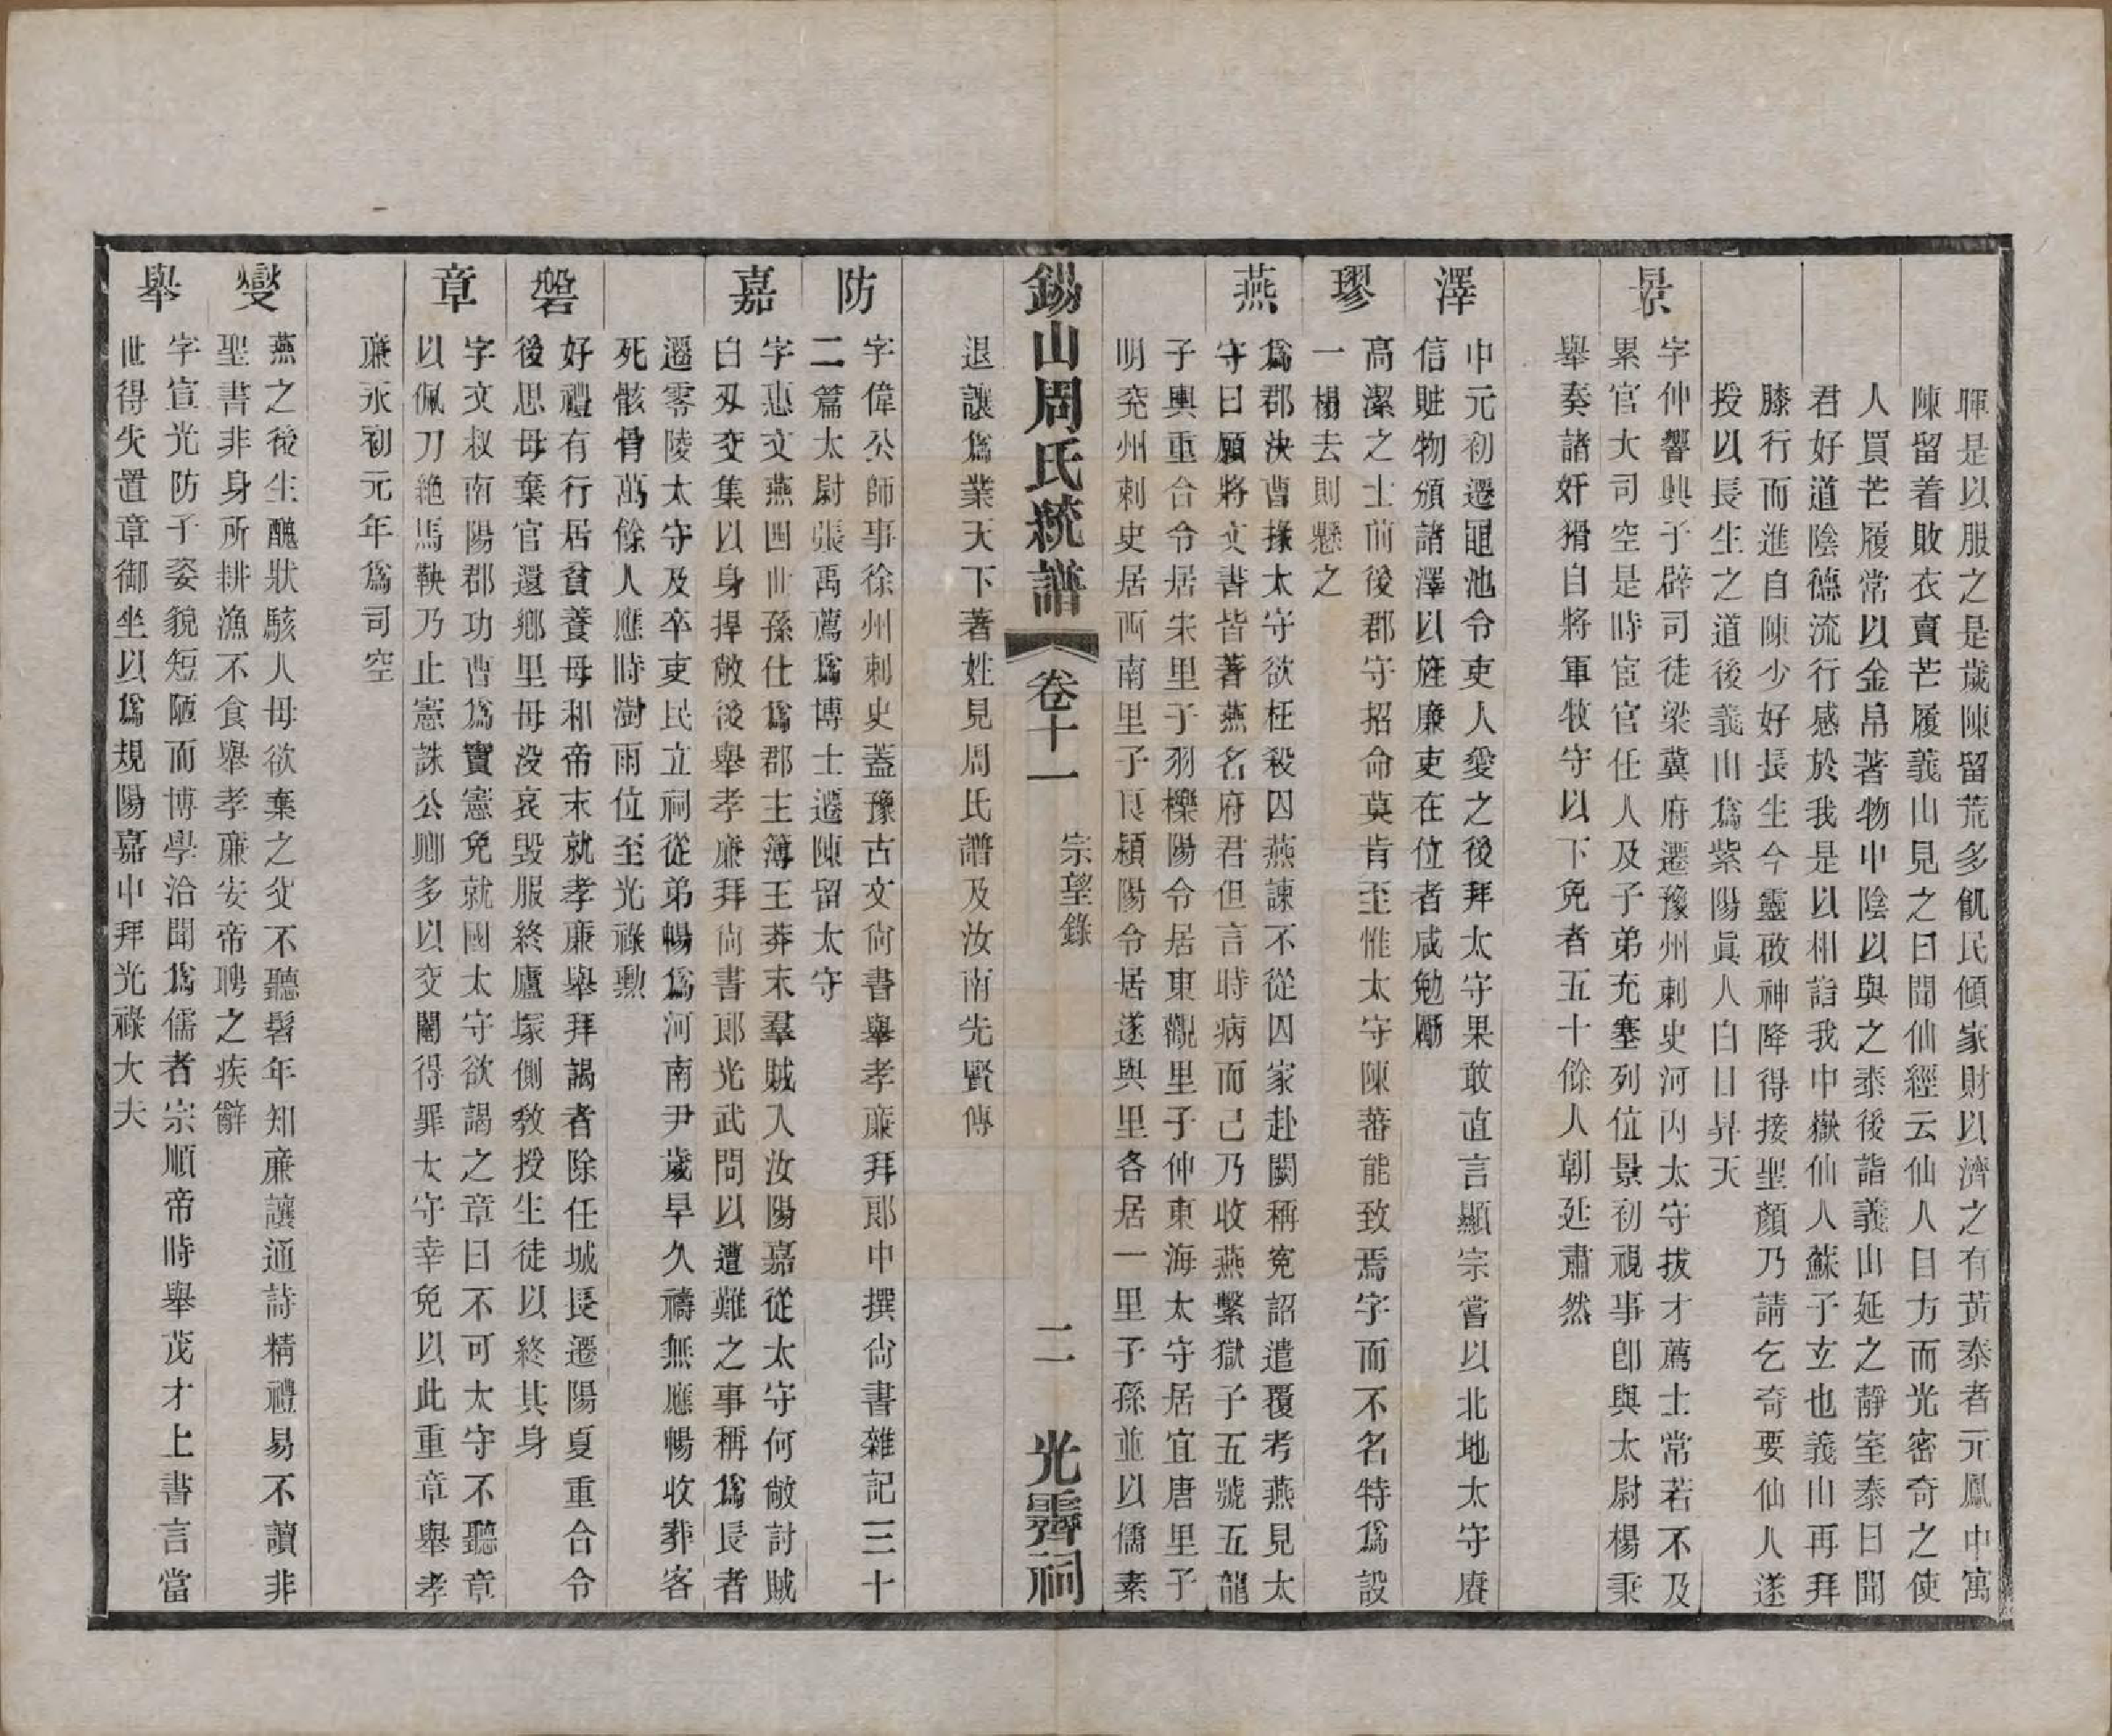 暉是以服之是歲陳留荒多飢民傾家財以濟之有黃泰者元鳳中寓
陳留着敗衣賣芒履義山見之曰聞仙經云仙人目方而光密奇之使
人買芒履常以金帛著物中陰以與之泰後詣義山延之靜室泰曰聞
君好道陰德流行感於我是以相詣我中嶽仙人蘇子玄也義山再拜
膝行而進自陳少好長生今靈啟神降得接聖顏乃請乞奇要仙人遂
授以長生之道後義山爲紫陽眞人白日昇天
景
字仲響興子辟司徒梁冀府遷豫州刺史河內太守拔才薦士常若不及
累官大司空是時宦官任人及子弟充塞列位景初視事卽與太尉楊秉
舉奏諸奸猾自將軍牧守以下免者五十餘人朝廷肅然
澤
中元初遷黽池令吏人愛之後拜太守果敢直言顯宗嘗以北地太守廖
信贓物頒諸澤以旌廉吏在位者咸勉勵
璆
高潔之士前後郡守招命莫肯至惟太守陳蕃能致焉字而不名特爲設
一榻去則懸之
燕
爲郡決曹掾太守欲枉殺囚燕諫不從囚家赴闕稱冤詔遣覆考燕見太
守曰願將文書皆著燕名府君但言時病而己乃收燕繫獄子五號五龍
子輿重合令居朱里子羽櫟陽令居東觀里子仲東海太守居宜唐里子
明兗州刺史居西南里子良潁陽令居遂與里各居一里子孫並以儒素
錫山周氏統譜 卷十一 宗望錄 二 光霽祠
退讓爲業天下著姓見周氏譜及汝南先賢傳
防
字偉公師事徐州刺史蓋豫古文尙書舉孝廉拜郎中撰尙書雜記三十
二篇太尉張禹薦爲博士遷陳留太守
嘉
字惠文燕四世孫仕爲郡主簿王莽末羣賊入汝陽嘉從太守何敞討賊
白刃交集以身捍敞後舉孝廉拜尙書郎光武問以遭難之事稱爲長者
遷零陵太守及卒吏民立祠從弟暢爲河南尹歲旱久禱無應暢收葬客
死骸骨萬餘人應時澍雨位至光祿勳
磐
好禮有行居貧養母和帝末就孝廉舉拜謁者除任城長遷陽夏重合令
後思母棄官還鄉里母没哀毀服終廬塚側敎授生徒以終其身
章
字文叔南陽郡功曹爲竇憲免就國太守欲謁之章曰不可太守不聽章
以佩刀絶馬鞅乃止憲誅公卿多以交關得罪太守幸免以此重章舉孝
廉永初元年爲司空
燮
燕之後生醜狀駭人母欲棄之父不聽髫年知廉讓通詩精禮易不讀非
聖書非身所耕漁不食舉孝廉安帝聘之疾辭
舉
字宣光防子姿貌短陋而博學洽聞爲儒者宗順帝時舉茂才上書言當
世得失置章御坐以爲規陽嘉中拜光祿大夫